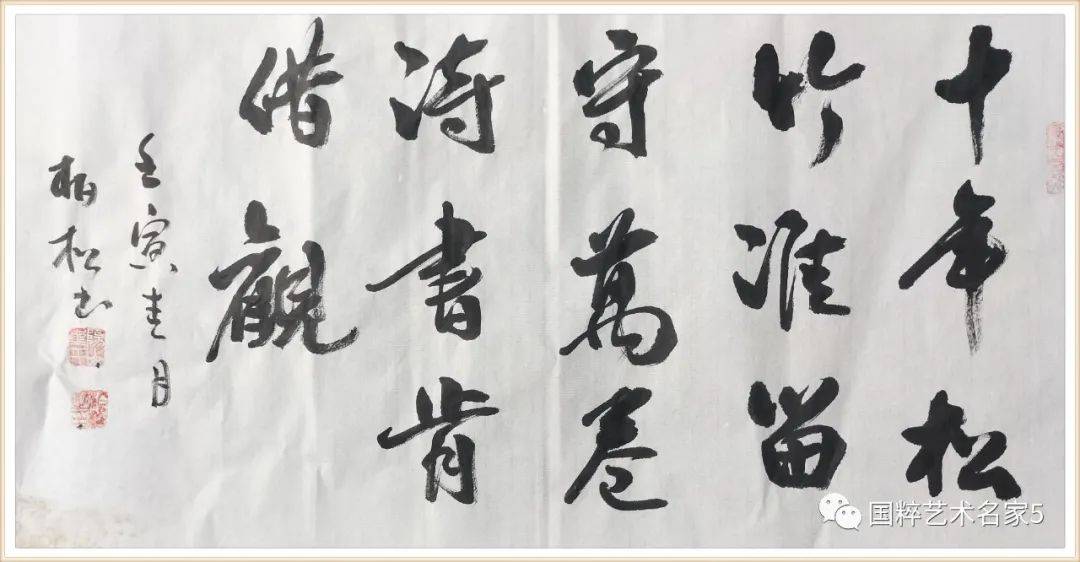 十年松
竹誰留
守萬卷
詩書肯
借觀
壬寅春月
柏松书
国粹艺术名家5